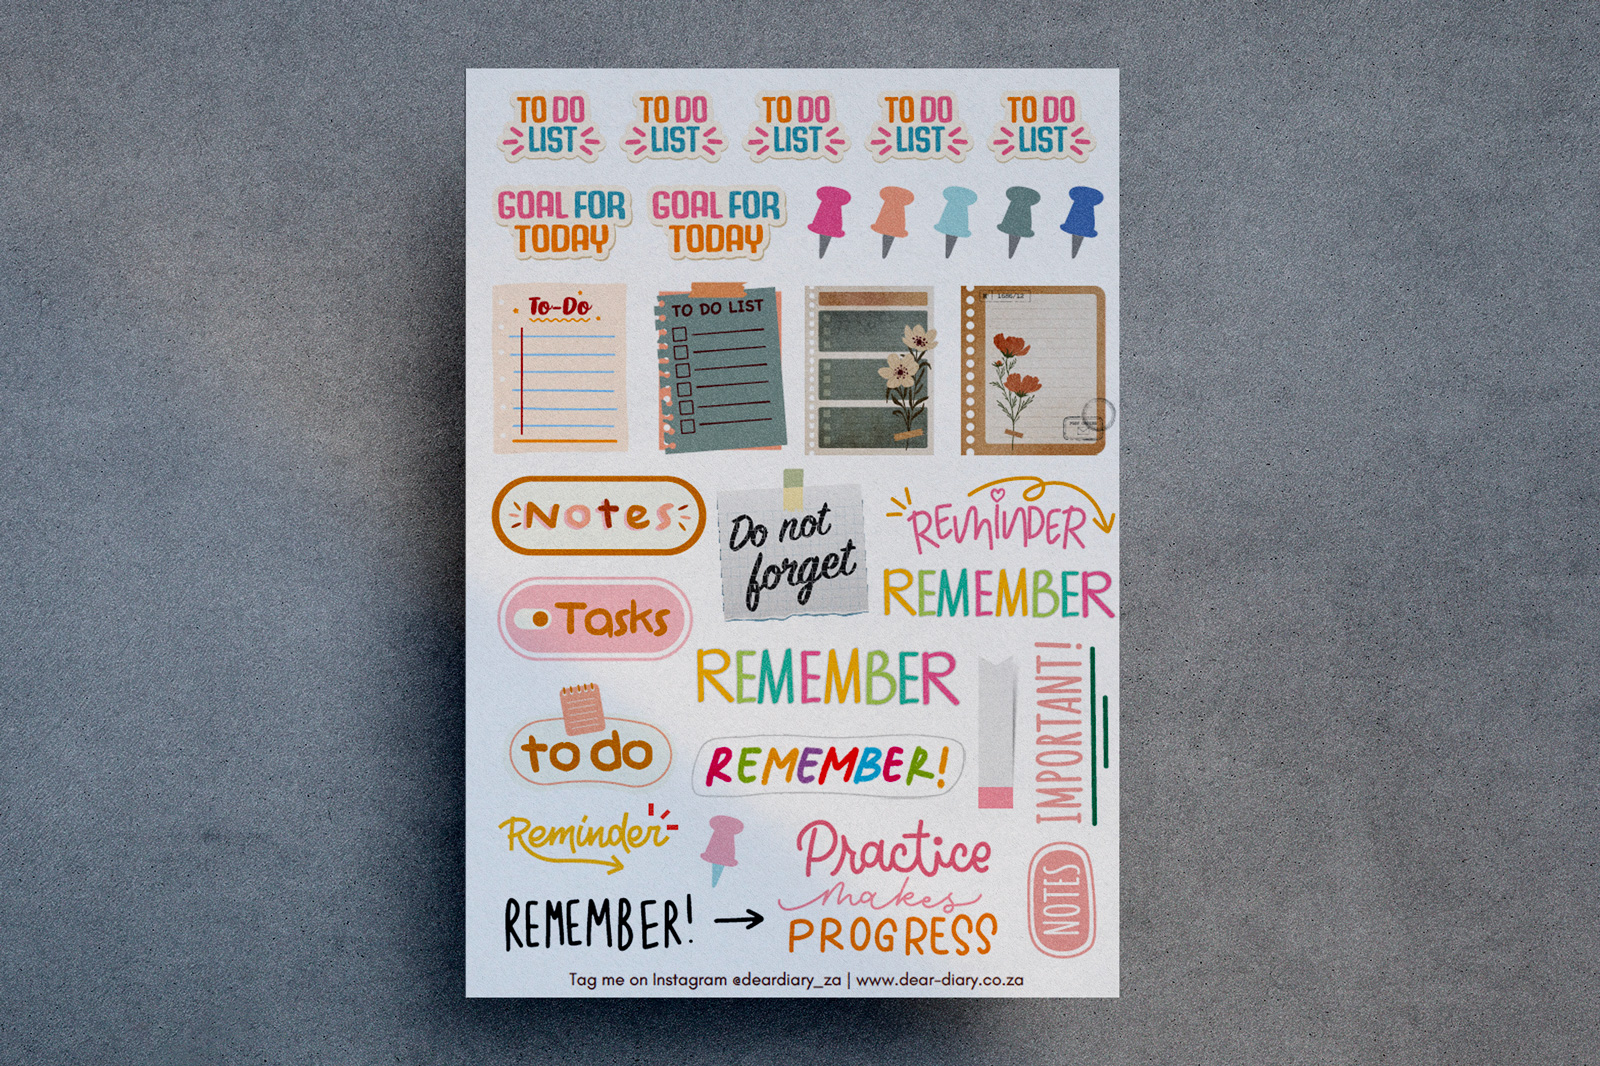 TO DO
LIST
TO DO
LIST
TO DO
LIST
TO DO
LIST
TO DO
LIST
GOAL FOR
TODAY
GOAL FOR
TODAY
To-Do
TO DO LIST
1686/12
Notes
Do not
forget
REMINDER
REMEMBER
Tasks
REMEMBER
IMPORTANT!
to do
REMEMBER!
Reminder
Practice
makes
PROGRESS
NOTES
REMEMBER!
Tag me on Instagram @deardiary_za | www.dear-diary.co.za